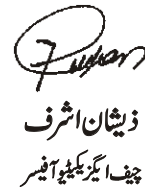 ذیشان اشرف
چیف ایگزیکیٹیو آفیسر